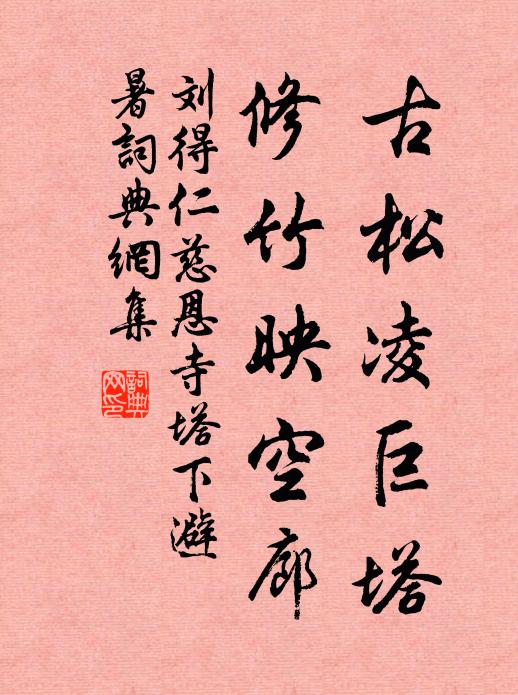 古松凌巨塔
修竹映空廊
刘得仁慈恩寺塔下避
暑詞典網集
詞典
网印